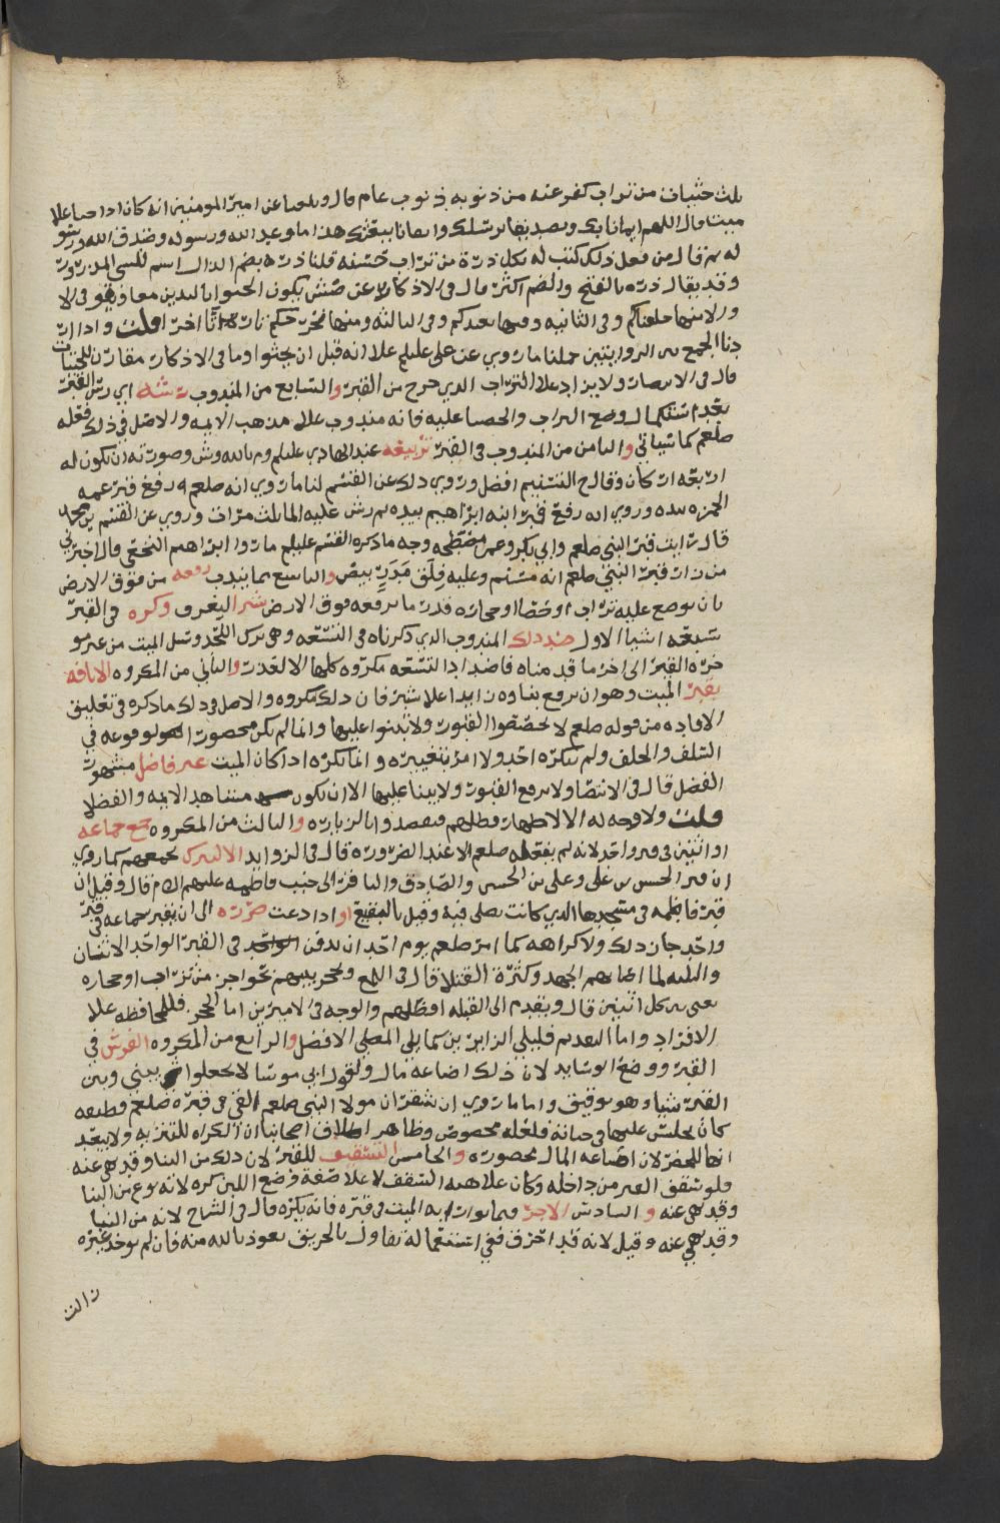 ثلث حثيات من تراب كفر عنه من ذنوبه ذنوب عام قال وبلغنا عن امير المومنين انه كان اذا حثا علا
ميت قال اللهم ايمانا بك وتصديقا برسلك وايقانا ببعثك هذا ما وعد الله ورسوله وصدق الله ورسو
له ثم قال من فعل ذلك كتب له بكل ذرة من تراب حسنة قلنا ذره بضم الذال اسم للشي المذرور
وقد يقال ذره بالفتح والضم اكثر قال في الاذكار عن يكون الحثوا باليدين معا ويقول في الا
ولا منها خلقناكم وفي الثانيه وفيها نعيدكم وفي الثالثه ومنها نخرجكم تارة اخرا قلت واذا ار
دنا الجمع بين الروايتين حملنا ما روي عن علي عليلم علا انه قبل ان يحثوا وما في الاذكار مقارن للحثيات
قال في الانتصار ولا يزاد علا التراب الذي خرج من القبر والسابع من المندوب رشه اي رش القبر
بعد استكمال وضع التراب والحصا عليه فانه مندوب علا مذهب الايمه والاصل في ذلك فعله
صلعم كما سياتي والثامن من المندوب في القبر تربيعه عند الهادي عليلم وم بالله وش وصورته ان يكون له
اربعه اركان وقال ح التسنيم افضل وروي ذلك عن القسم لنا ما روي انه صلعم رفع قبر عمه
الحمزه بيده وروي انه رفع قبر ابنه ابراهيم بيده ثم رش عليه الما ثلث مرات وروي عن القسم بن محمد
قال رايت قبر النبي صلعم وابي بكر وعمر مسطحه وجه ما ذكره القسم عليلم ما روا ابراهيم النخعي قال اخبرني
من را قبر النبي صلعم انه مسنم وعليه فلق مدر بيض والتاسع مما يندب رفعه من فوق الارض
بان يوضع عليه تراب او حصا او حجاره قدر ما يرفعه فوق الارض شبرا ليعرف وكره في القبر
سبعة اشيا الاول ضد ذلك المندوب الذي ذكرناه في التسعه وهي ترك اللحد وسل الميت من غير مو
خره القبر الى اخر ما قدمناه فاضداد التسعه مكروه كلها الا لعذر والثاني من المكروه الانافه
بقبر الميت وهو ان يرفع بناوه زايدا علا شبر فان ذلك مكروه والاصل في ذلك ما ذكره في تعليق
الافاده من قوله صلعم لا تجصصوا القبور ولا تبنوا عليها وانما لم يكن محصورا لوقوعه في
السلف والخلف ولم ينكره احد ولا امر بتغييره وانما يكره اذا كان الميت غير فاضل مشهور
الفضل قال في الانتصار ولا يرفع القبور ولا يبنا عليها الا ان يكون مشاهد الايمه والفضلا
قلت ولا وجه له الا لاظهار فضلهم فيقصدوا بالزياره والثالث من المكروه جمع جماعه
او اثنين في قبر واحد لانه لم يفعله صلعم الا عند الضروره قال في الزوايد الا لتبرك بجمعهم كما روي
ان قبر الحسن بن علي وعلي بن الحسين والصادق والباقر الى جنب فاطمه عليهم السلام قال وقيل ان
قبر فاطمه في مسجدها الذي كانت تصلي فيه وقيل بالبقيع او اذا دعت ضروره الى ان يقبر جماعه في قبر
واحد جاز ذلك ولا كراهه كما امر صلعم يوم احد ان يدفن في القبر الواحد الاثنان
والثلثه لما اصابهم الجهد وكثرة القتلا قال في اللمع ويحجز بينهم بحواجز من تراب او حجاره
يعني بين كل اثنين قال ويقدم الى القبله افضلهم والوجه في الامرين اما الحجز فللمحافظه علا
الافراد واما التقديم فليلي الزايرين كما يلي المصلي الافضل والرابع من المكروه الفرش في
القبر ووضع الوسايد لان ذلك اضاعه مال ولقول ابي موسا لا تجعلوا بيني وبين
القبر شيا وهو توقيف واما ما روي ان شقران مولا النبي صلعم القى في قبره صلعم قطيفه
كان يجلس عليها في حياته فلعله مخصوص وظاهر اطلاق اصحابنا ان الكراه للتنزيه ولا يبعد
انها للحضر لان اضاعه المال محظوره والخامس التسقيف للقبر لان ذلك من البنا وقد نهي عنه
فلو سقف القبر من داخله وكان علا هيه السقف لا علا صفة وضع اللبن كره لانه نوع من البنا
وقد نهي عنه والسادس الاجر فيما يوارا به الميت في قبره فانه يكره قال في الشرح لانه من البنا
وقد نهي عنه وقيل لانه قد احرق ففي استعماله تفاول بالحريق نعوذ بالله منه فان لم يوجد غيره
زالت